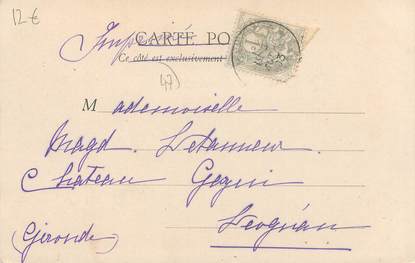 12€
Imprimé
CARTE PO
Ce côté est exclusivement
(47)
Mademoiselle
Magd. Letanneur
Chateau Gazin
Léognan
(Gironde)